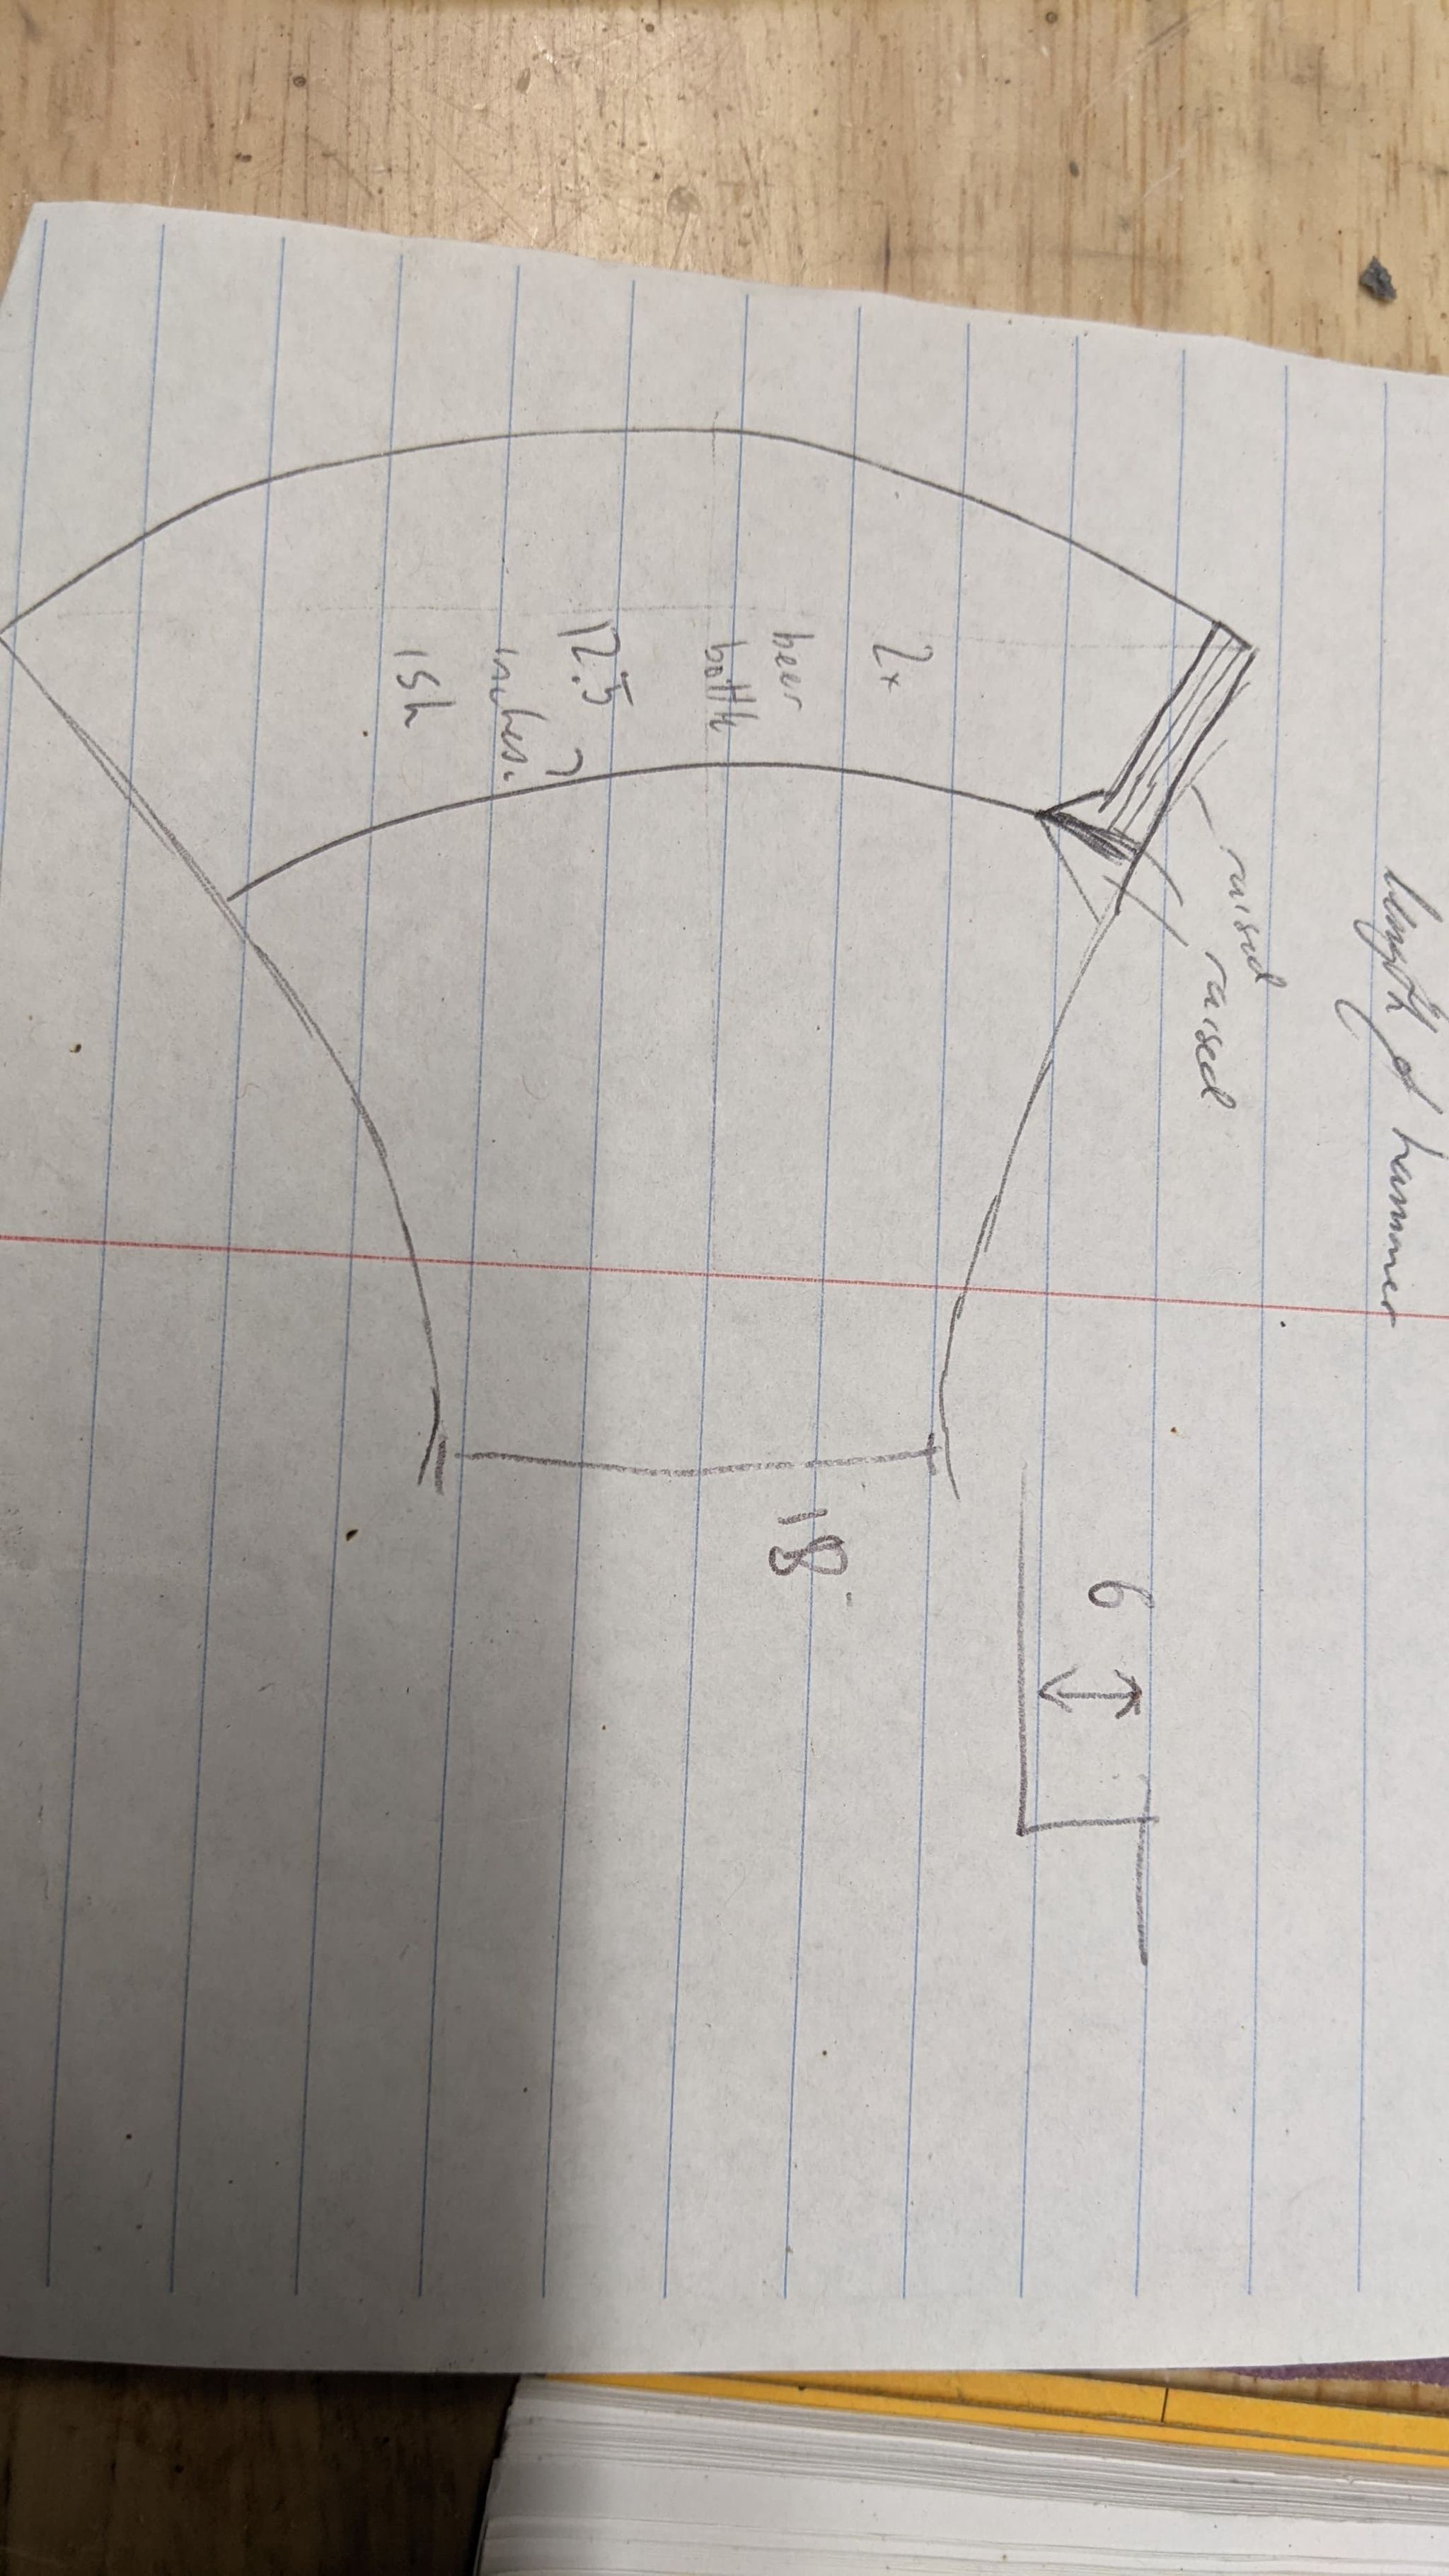 length of hammer
raised
raised
2x
beer
bottle
12.5
inches?
ish
6
18